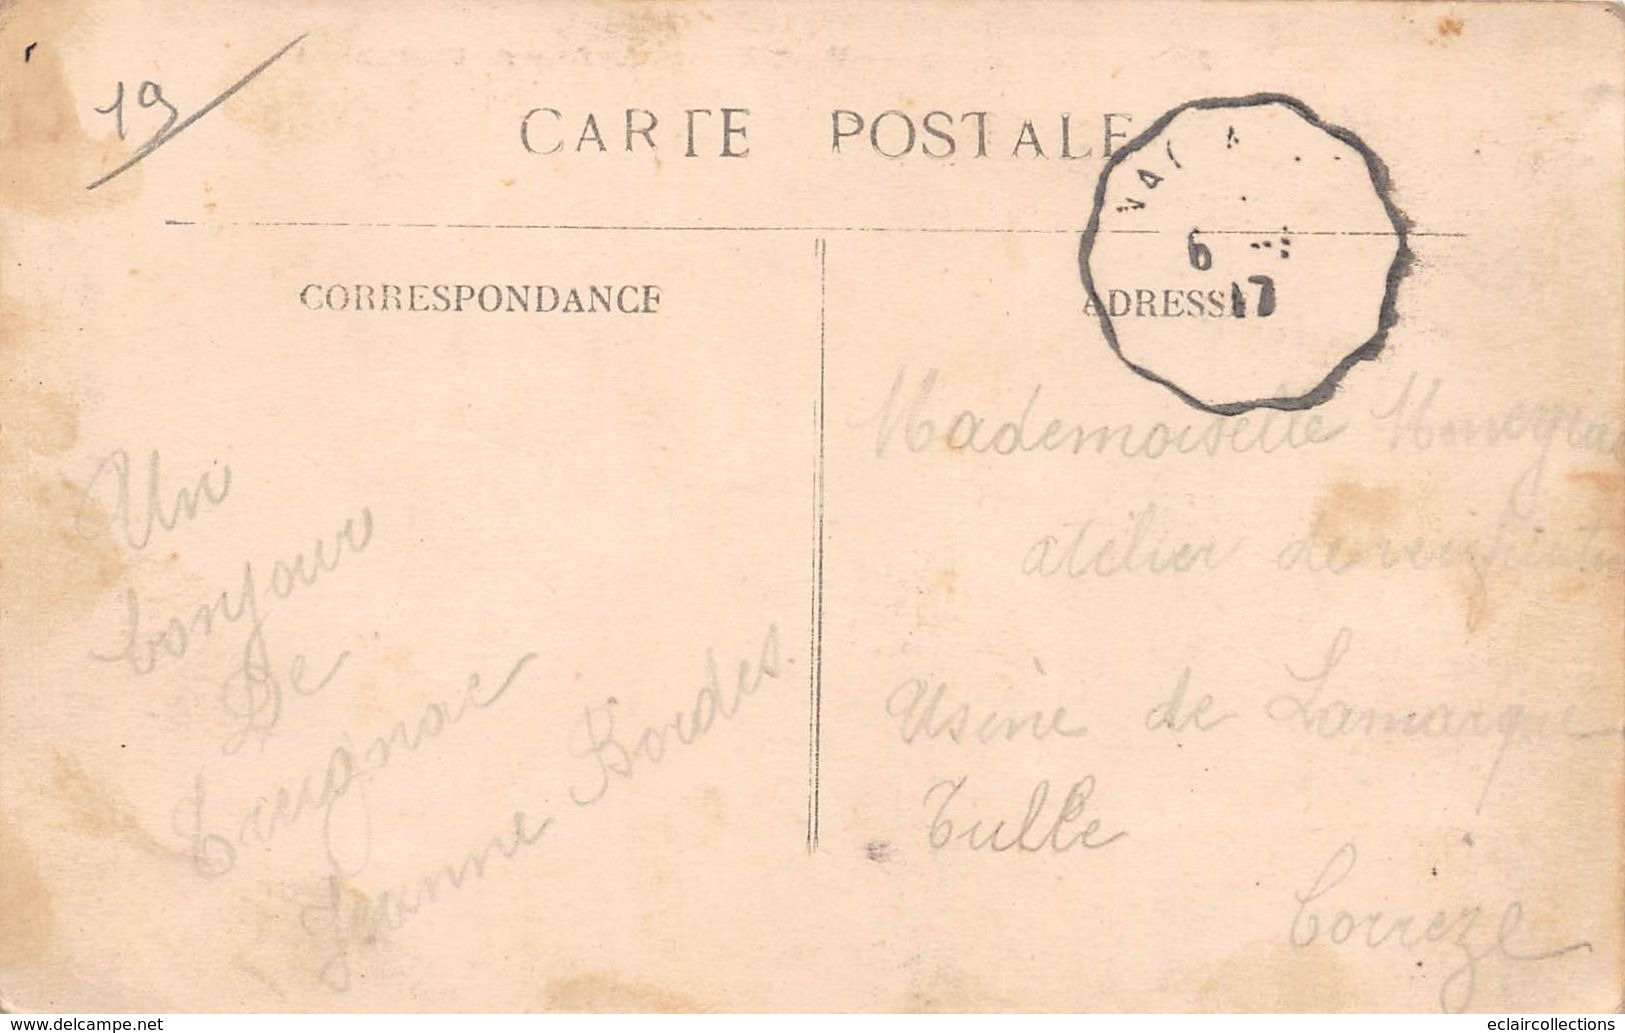 19
CARTE POSTALE
6
17
CORRESPONDANCE
ADRESSE
Un
bonjour
De
Treignac
Jeanne Bordes.
Mademoiselle
atelier de
Usine de Lamarque
Tulle
Corrèze
www.delcampe.net
eclaircollections